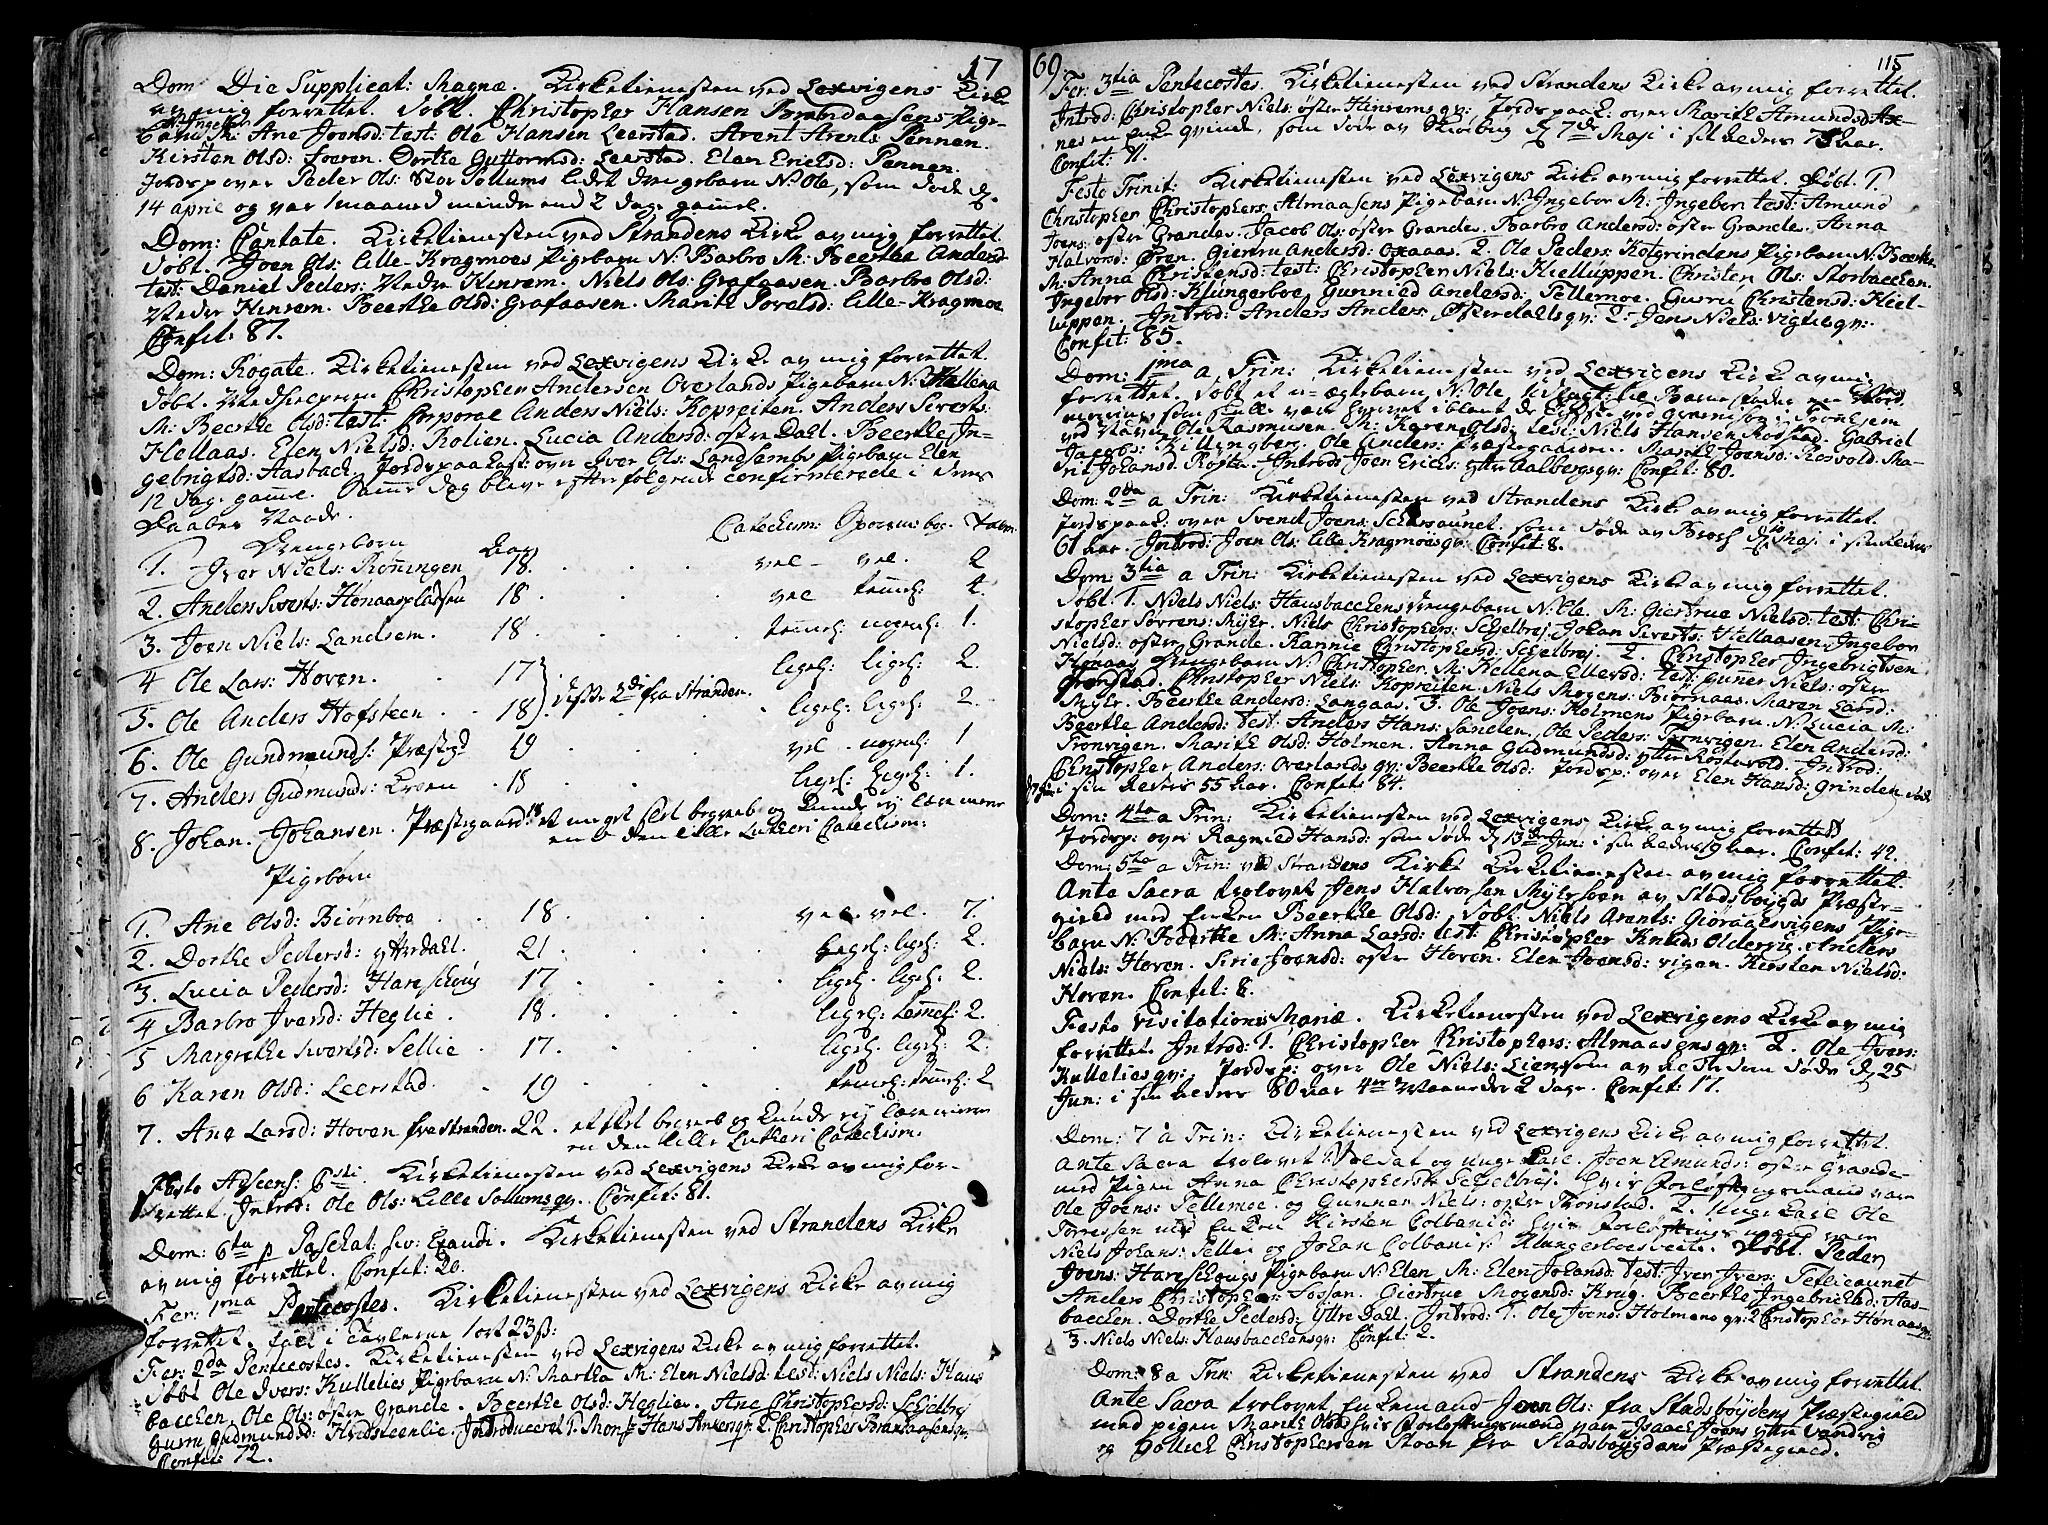 17
Dom: Die Supplicat: Magnæ. Kirketienesten ved Lexvigens Kirke
av mig forrettet. Døbt. Christopher Hansen Brændaasens Pige-
barn N: Ingebor M: Ane Joensd: test: Ole Hansen Leerstad. Arent Arents: Pennen.
Kirsten Olsd: Foeren. Dorthe Guttormsd: Leerstad. Elen Ericksd: Pennen.
Jordsp over Peder Ols: Stor Sollums lidet drengebarn N: Ole, som døde d.
14 april og var 1 maaned mindre end 2 dage gamel.
Dom: Cantate. Kirketienesten ved Strandens Kirke av mig forrettet.
Døbt. Joen Ols: Lille-Kragmoes Pigebarn N: Barbro M: Beerthe Andersd:
test: Daniel Peders: Nedre Henrem. Niels Ols: Grafaasen. Barbro Olsd:
Nedre Henrem. Beerthe Olsd: Grafaasen. Marith Povelsd: Lille-Kragmoe
Confit: 87.
Dom: Rogate. Kirketienesten ved Lexvigens Kirke av mig forrettet.
Døbt. Christopher Andersen Overlands Pigebarn N: Hellena
M: Beerthe Olsd: test: Corporal Anders Niels: Kopreiten. Anders Siverts:
Hellaas. Elen Nielsd: Rolien. Lucia Andersd: østre Dahl. Beerthe In-
gebrigtsd: Aasback. Jordspaakast: over Iver Ols: Landsembs Pigebarn Elen
12 dage gamel. Samme dag bleve efterfølgende confirmerede i deres
Daabes Naade.
Drengebørn Aar Catechism: Spørsm: bog. Psalm:
1. Iver Niels: Røningen 18. vel – vel. 2
2. Anders Siverts: Hønaasplassen 18. vel temel: 4.
3. Joen Niels: Landsem. 18. temel: nogenl: 1.
4 Ole Lars: Hoven. 17 ligel: ligel: 2.
disse 2de fra Stranden.
5. Ole Anders Hofsteen 18 ligel: ligel: 2.
6. Ole Gundmunds: Præsteg 19 vel. nogenl: 1
7. Anders Gudmunds: Kroen 18 ligel: ligel: 1.
8. Johan Johansen. Præstegaard: 18 et meget slet begreeb og kunde ej lære mere
end den lille Lutheri Catechism:
Pigebørn
1. Ane Olsd: Biørnboe 18. vel. vel. 7.
2. Dorthe Pedersd: ytterdahl. 21. ligel: ligel: 2.
3. Lucia Pedersd: Hareschoug 17. ligel: ligel: 2.
4 Barbro Iversd: Heglie. 18. ligel: temel: 2.
5 Margrethe Siversd: Sellie. 17. ligel: ligel: 2.
6 Karen Olsd: Leerstad. 19 temel: temel: 2
7. Ane Larsd: Hoven fra Stranden. 22. et slet begreeb og kunde ej lære mere
en den lille Lutheri Catechism.
Festo Adscens: Christi. Kirketienesten ved Lexvigens Kirke av mig for-
rettet. Introd: Ole Ols: Lille Sollums qv. Confit: 81.
Dom: 6ta p Paschat: sive: Exaudi. Kirketienesten ved Strandens Kirke
av mig forrettet. Confit: 20.
Fer: 1ma Pentecostes. Kirketienesten ved Lexvigens Kirke av mig
forrettet. faldt i Tavlerne 1 ort 23 ß:
Fer: 2da Pentecostes. Kirketienesten ved Lexvigens Kirke av mig forrettet.
Døbt Ole Ivers: Kulleties Pigebarn N: Martha M: Elen Nielsd: test: Niels Niels: Haus
bacchen. Ole Ols: østre Grande. Beerthe Olsd: Heglie. Ane Christophersd: Scheelbrej
Gurru Gudmundsd: Hvidsteenlie. Introduceret 1. Mons: Hans Ankers qv. 2. Christopher Brændaasens qv.
Confit: 72.
69. 115
Fer: 3tia Pentecostes. Kirketienesten ved Strandens Kirke av mig forrettet.
Introd: Christopher Niels: øster Hinrems qv: Jordspaak: over Marith Amundsd: Ax-
nes en enke qvinde, som døde av d. 7de Maji i sit alders 73 Aar.
Confit: 11.
Festo Trinit: Kirketienesten ved Lexvigens Kirke av mig forrettet. Døbt. 1.
Christopher Christophers: Almaasens Pigebarn N: Ingebor M: Ingebor: test: Amund
Joens: østre Grande. Jacob Ols: østre Grande. Barbro Andersd: østre Grande. Anna
Halvorsd: Øren. Giertru Andersd: Oxaas. 2. Ole Peders: Kotgrindens Pigebarn N: Beerthe.
M: Anna Christensd: test: Christopher Niels: Kielluppen. Christen Ols: Storbacchen.
Ingebor Olsd: Klungerboe. Gunnild Andersd: Tellemoe. Gurru Christensd: Kiel-
luppen. Introd: Anders Anders: Østerdahls qv: 2. Jens Niels: Vigens qv:
Confit: 85.
Dom: 1ma a Trin: Kirketienesten ved Lexvigens Kirke av mig
forrettet. Døbt et u-ægtebarn N: Ole udlagt til Barnefader en Nord
som skulle være hvervet iblant de ved guarnison i Tronhiem
ved Navn Ole Rasmusen. M: Karen Olsd: test: Niels Hansen Rodstad. Gabriel
Jacobs: Killingberg. Ole Anders: Præstegaarden. Marith Joensd: Rosvold. Ma-
rit Johansd: Rosta. Introd: Joen Ericks: yttre Aalbergs qv: Confit: 80.
Dom: 2da a Trin: Kirketienesten ved Strandens Kirke av mig forrettet.
Jordspaak: over Svend Joens: Schersaunet som døde av Brost d. Maji i sin alders
61 Aar. Introd: Joen Ols: Lille Kragmoes qv: Confit: 8.
Dom: 3tia a Trin: Kirketienesten ved Lexvigens Kirke av mig forrettet.
Døbt. 1. Niels Niels: Hausbacchens drengebarn N: Ole. M: Giertrue Nielsd: test: Chri-
stopher Sørrens: Myhr. Niels Christophers: Schielbrej. Johan Siverts: Hellaasen. Ingebor
Nielsd: østre Grande. Rannie Christophersd: Schelbrej. 2. Christopher Ingebrigtsen
Hønaas drengebarn N: Christopher M: Hellena Ellevsd: test: Guner Niels: østre
Grønstad. Christopher Niels: Kopreiten. Niels Mogens: Biørnaas. Maren Larsd:
Myhr. Beerthe Andersd: Langaas. 3. Ole Joens: Holmens Pigebarn N: Lucia M:
Beerthe Andersd: test: Anders Hans: Sanden. Ole Peders: Tronvigen. Elen Andersd:
Tronvigen. Marith Olsd: Holmen. Anna Gudmundsd: yttre Rostevold. Introd:
Christopher Anders: Overlands qv: Beerthe Olsd: Jordsp: over Elen Hansd: Grinden døde
i sin alders 55 Aar. Confit: 84.
Dom: 4ta a Trin: Kirketienesten ved Lexvigens Kirke av mig forrettet
Jordsp: over Ragnild Hansd: som døde d. 13de Jun: i sin alders 19 Aar. Confit: 42.
Dom: 5ta a Trin: ved Strandens Kirke Kirketienesten av mig forrettet.
Ante Sacra trolovet Jens Halvorsen Myhrsloen av Stadsboygds Præste-
gield med Enken Beerthe Olsd: Døbt: Niels Arents: Gioraaesvigens Pige-
barn N: Beerthe M: Anna Larsd: test: Christopher Knuds: Oldervig. Anders
Niels: Hoven. Sirie Joensd: østre Hoven. Elen Joensd: vigan. Kersten Nielsd:
Hoven. Confit: 8.
Festo Visitationis Mariæ. Kirketienesten ved Lexvigens Kirke av mig
forrettet. Introd: 1. Christopher Christophers: Almaasens qv: 2. Ole Ivers:
Kulleties qv: Jordsp: over Ole Niels: Liens som av alderdom døde d. 25
Jun: i sin alders 80 Aar 4re Maaneder 2 dage. Confit: 17.
Dom: 7 a Trin: Kirketienesten ved Lexvigens Kirke av mig forrettet.
Ante Sacra trolovet Soldat og unge Karl. Joen Amunds: østre Grande
med Pigen Anna Christophersd: Schelbrej. Hvis Forlovningsmænd vare
Ole Joens: Tellemoe. og Gunnar Niels: østre Gronstad. 2. Unge Karl Ole
Torresen med Enken Kirsten Colbanid: Hvis forlovningsmænd vare
Niels Johans: Sellie og Johan Colbanis: Klungerboesveet. Døbt. Peder
Joens: Hareschougs Pigebarn N: Elen M: Elen Johansd: test: Iver Ivers: Tetlieaunet
Anders Christophers: Sossan. Giertrue Mogensd: Krug. Beerthe Ingebricktsd: Aas-
bacchen. Dorthe Pedersd: Yttre Dahl. Introd: 1. Ole Joens: Holmens qv: 2 Christopher Hønaas qv.
3. Niels Niels: Hausbacchens qv: Confit: 2.
Dom: 8 a Trin: Kirketienesten ved Strandens Kirke av mig forrettet.
Ante Sacra trolovet Enkemand Joen Ols: fra Stadsboydens Præstegield
med pigen Marith Olsd: hvis Forlovningsmænd vare Isaach Joens: yttre Vandvig
og Gollich Christophersen Moan fra Stadsboygdens Præstegield.